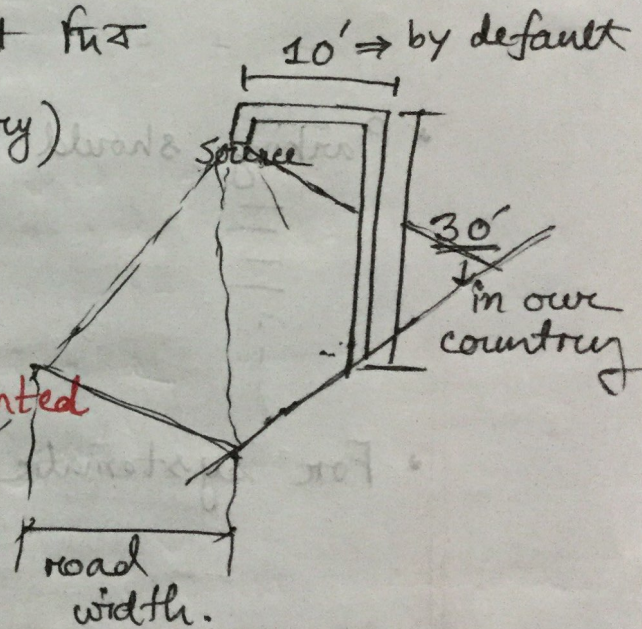 দিব
10' ⇒ by default
ry)
Source
30'
in our
country
nted
road
width.